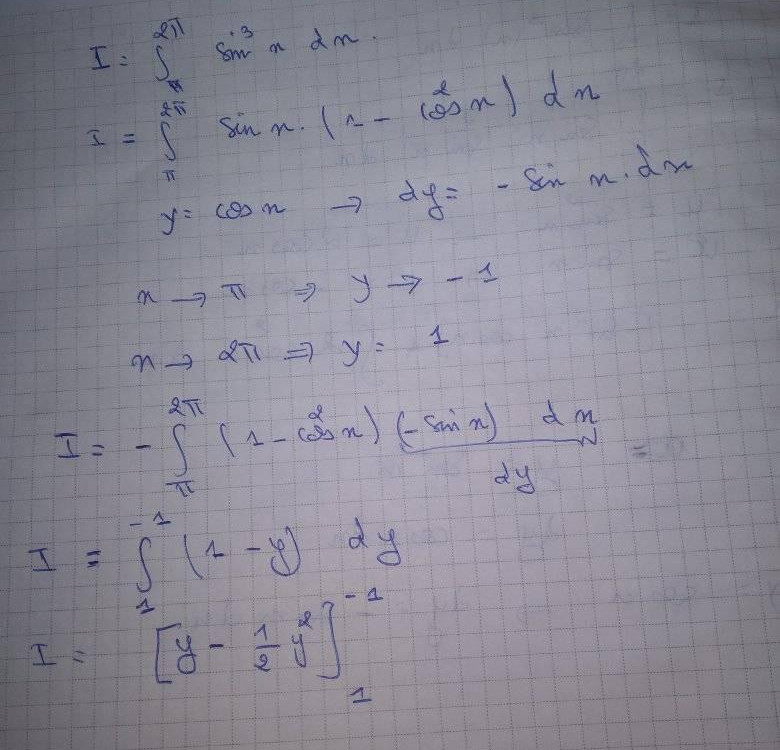 I = ∫_π^{2π} sin³ x dx.
I = ∫_π^{2π} sin x. (1 - cos² x) dx
y = cos x → dy = - sin x. dx
x → π ⇒ y → - 1
x → 2π ⇒ y = 1
I = - ∫_π^{2π} (1 - cos² x) (- sin x) dx =
dy
I = ∫_1^{-1} (1 - y) dy
I = [y - 1/2 y²]_1^{-1}